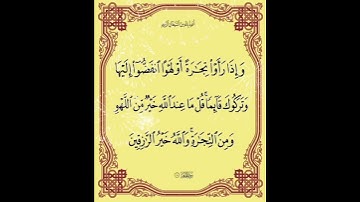 وَإِذَا رَأَوْا۟ تِجَـٰرَةً أَوْ لَهْوًا ٱنفَضُّوٓا۟ إِلَيْهَا
وَتَرَكُوكَ قَآئِمًا ۚ قُلْ مَا عِندَ ٱللَّهِ خَيْرٌ مِّنَ ٱللَّهْوِ
وَمِنَ ٱلتِّجَـٰرَةِ ۚ وَٱللَّهُ خَيْرُ ٱلرَّٰزِقِينَ